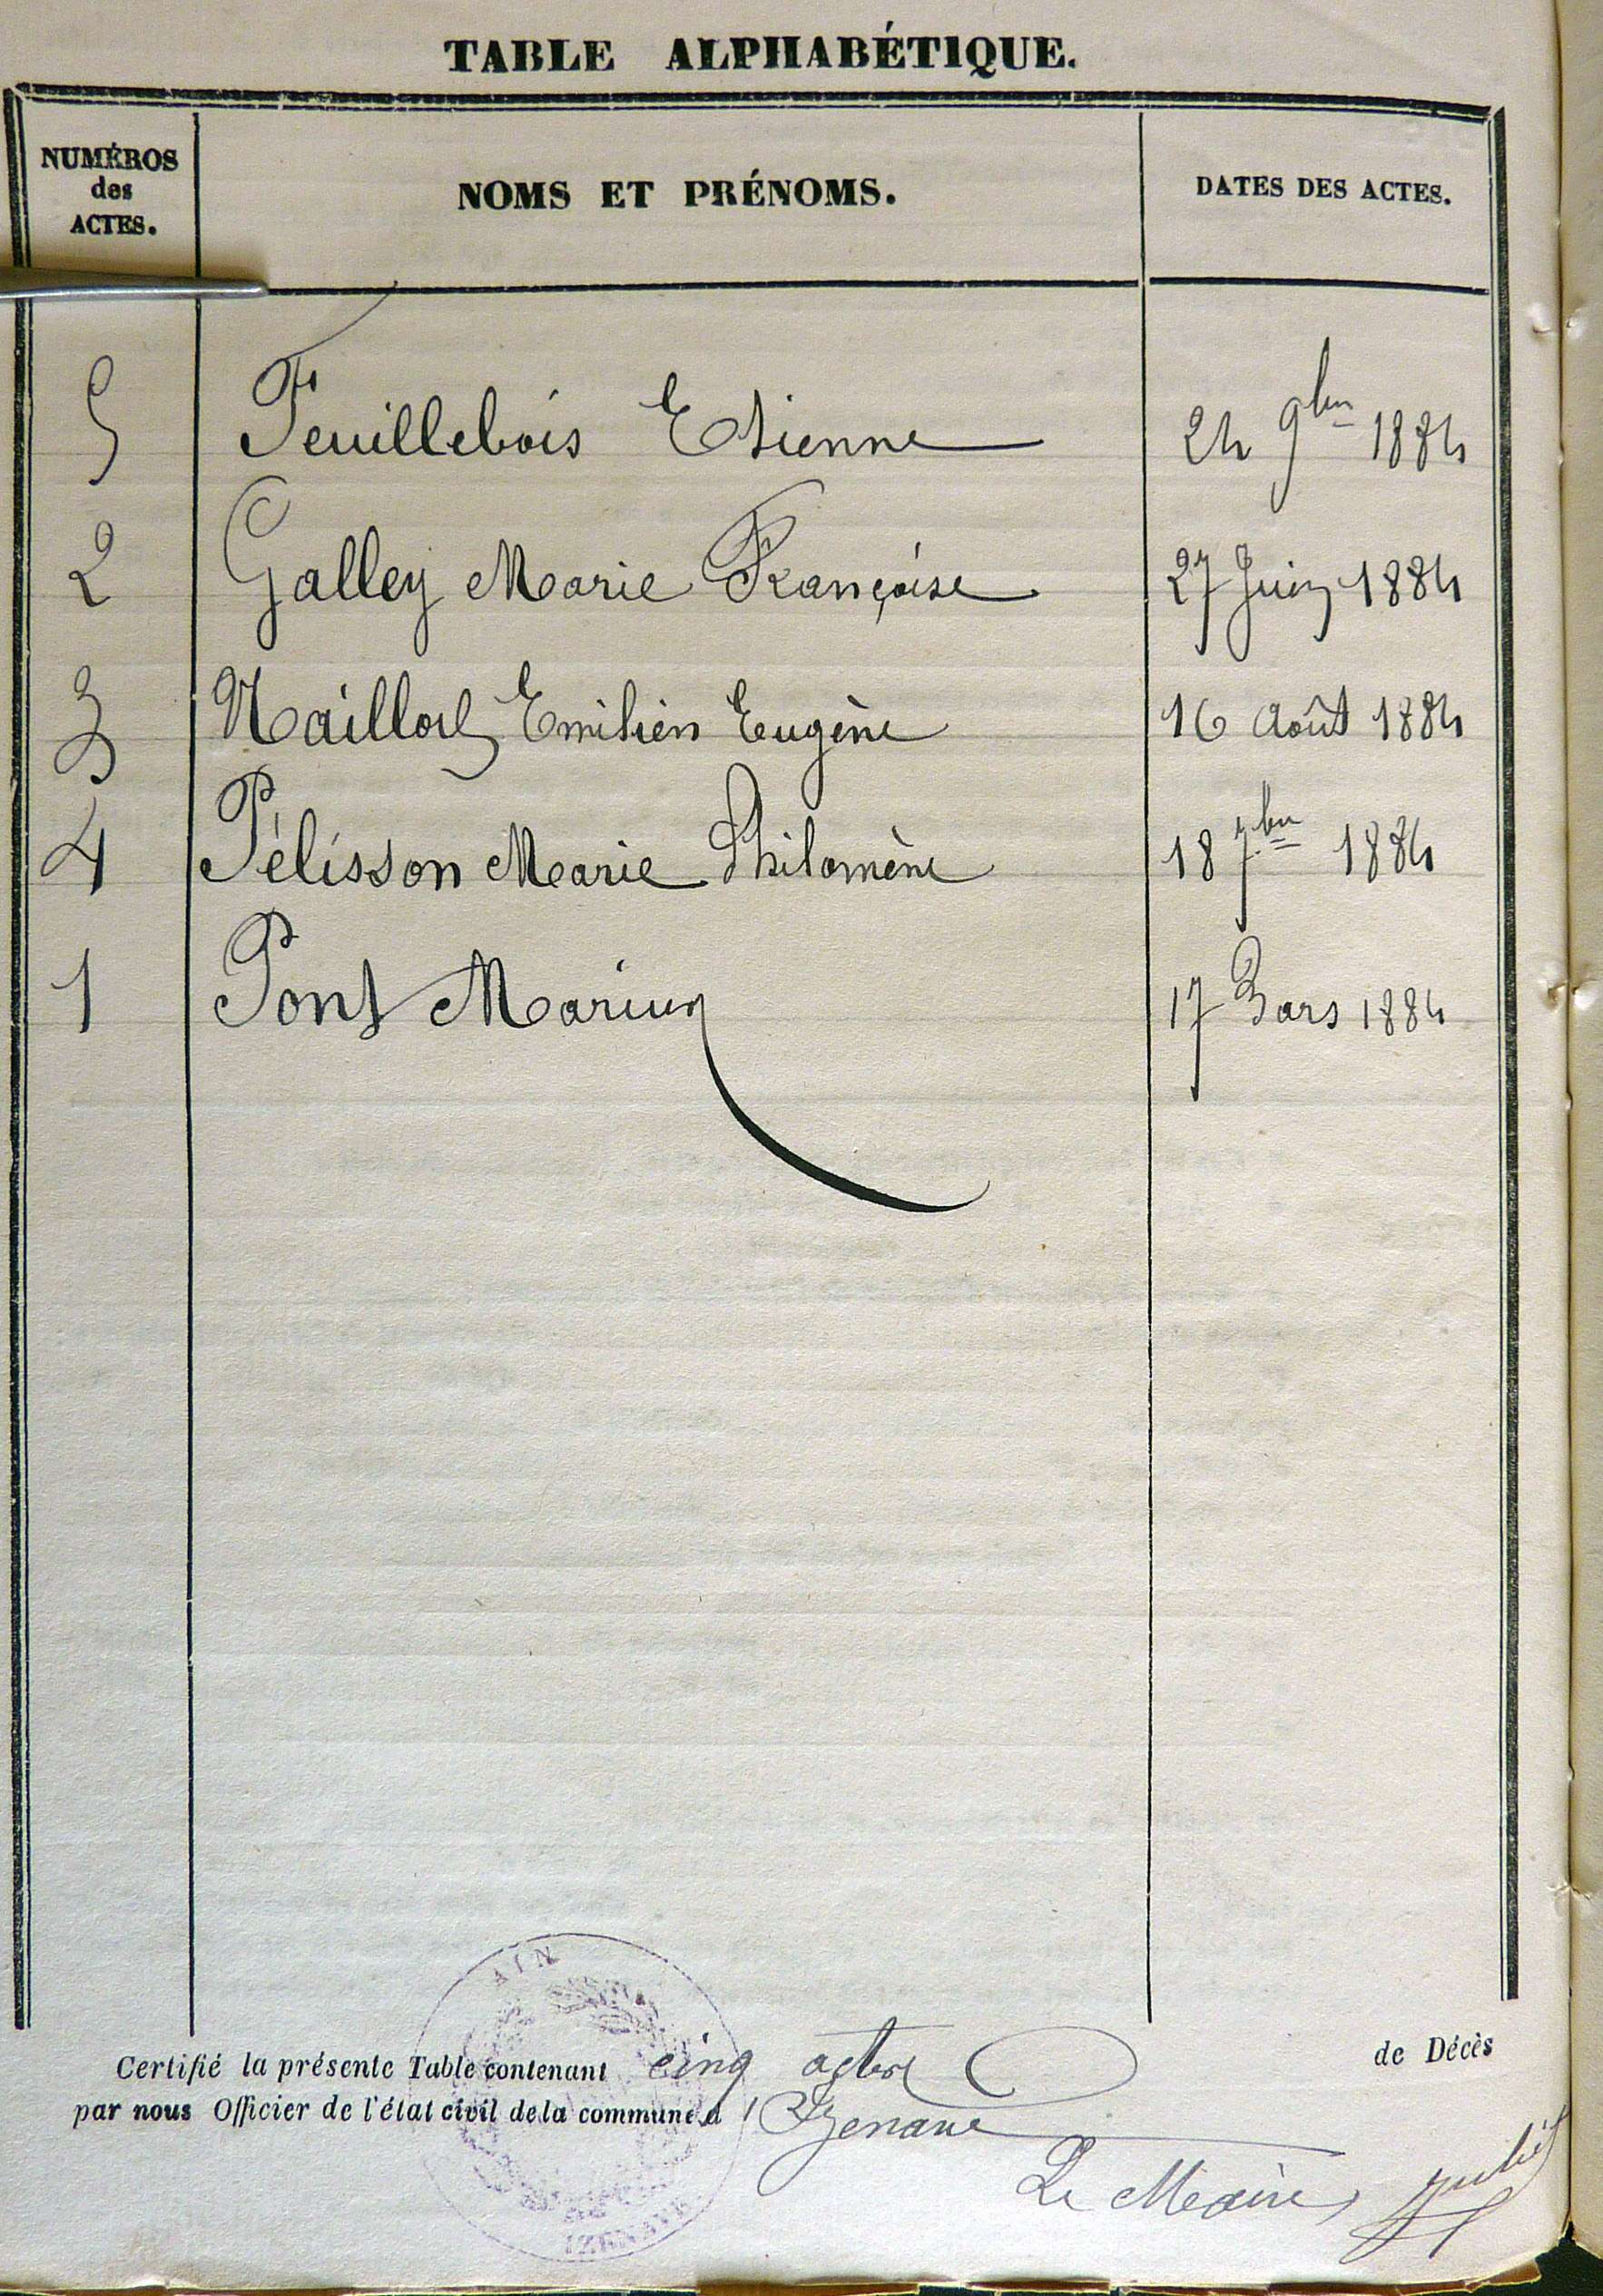 TABLE ALPHABÉTIQUE.
NUMÉROS des ACTES. NOMS ET PRÉNOMS. DATES DES ACTES.
5 Feuillebois Etienne 24 9bre 1884
2 Galley Marie Françoise 27 Juin 1884
3 Maillod Emilien Eugène 16 Août 1884
4 Pélisson Marie Philomène 18 7bre 1884
1 Pont Marius 17 Mars 1884
AIN
Certifié la présente Table contenant cinq actes de Décès
par nous Officier de l'état civil de la commune d'Izenave
Le Maire,
IZENAVE